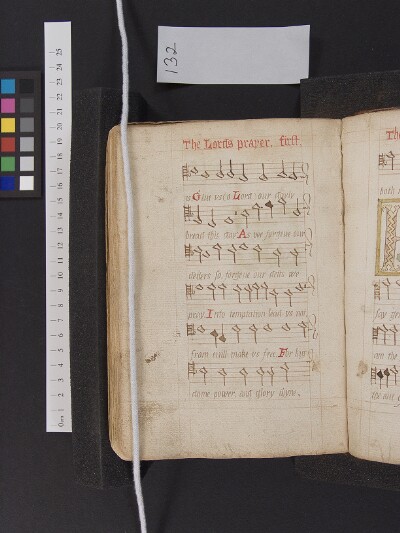 132
The Lords prayer. first.
Giue vs o Lord our dayly
bread this day: As we forgiue our
detters so forgiue our detts we
pray. Into temptation lead vs not
from euill make vs free. For
dome power, and glory thyne.
The
both
say
0 1 2 3 4 5 6 7 8 9 10 11 12 13 14 15 16 17 18 19 20 21 22 23 24 25